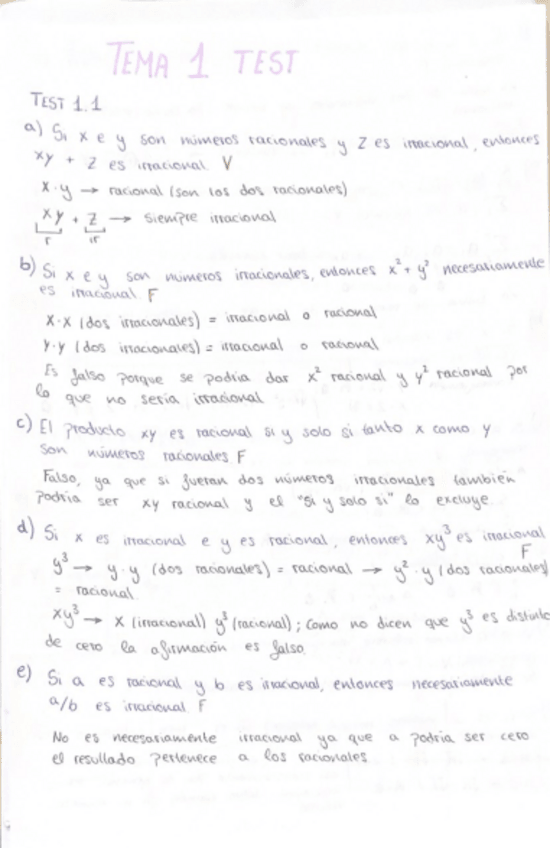 TEMA 1 TEST
TEST 1.1
a) Si x e y son números racionales y z es irracional, entonces
xy + z es irracional. V
x·y → racional (son los dos racionales)
xy + z → siempre irracional
r ir
b) Si x e y son números irracionales, entonces x² + y² necesariamente
es irracional. F
x·x (dos irracionales) = irracional o racional
y·y (dos irracionales) = irracional o racional
Es falso porque se podría dar x² racional y y² racional por
lo que no sería irracional.
c) El producto xy es racional si y solo si tanto x como y
son números racionales F
Falso, ya que si fueran dos números irracionales también
podría ser xy racional y el "si y solo si" lo excluye.
d) Si x es irracional e y es racional, entonces xy³ es irracional
F
y³ → y·y (dos racionales) = racional → y²·y (dos racionales)
= racional.
xy³ → x (irracional) y³ (racional); como no dicen que y³ es distinto
de cero la afirmación es falsa.
e) Si a es racional y b es irracional, entonces necesariamente
a/b es irracional F
No es necesariamente irracional ya que a podría ser cero
el resultado pertenece a los racionales.